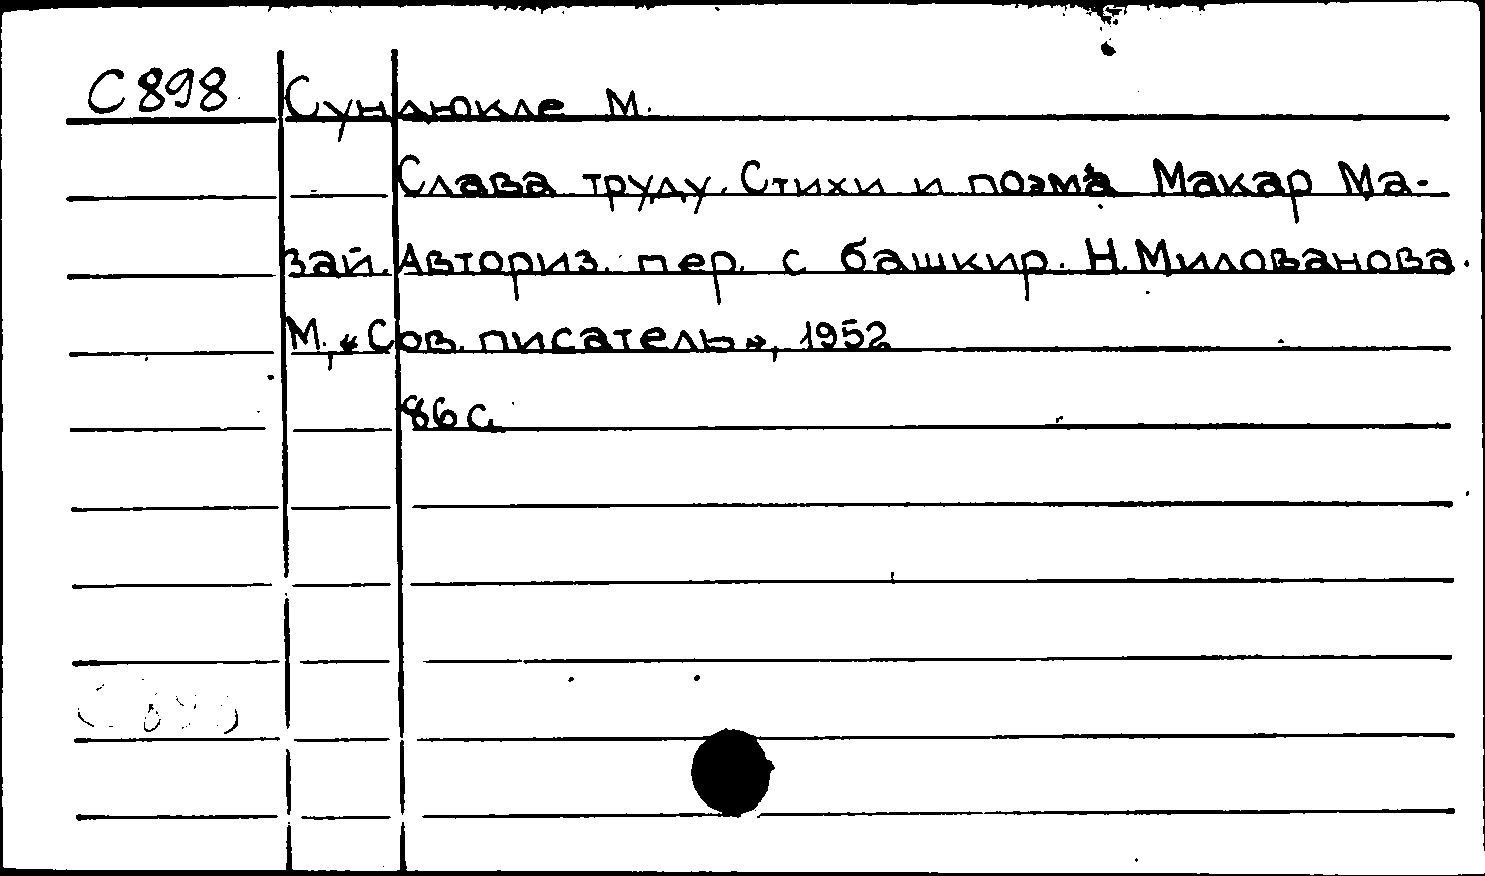 С898 Сундюкле М.
Слава труду. Стихи и поэма Макар Ма-
зай. Авториз. пер. с башкир. Н. Милованова.
М., «Сов. писатель», 1952
86 с.